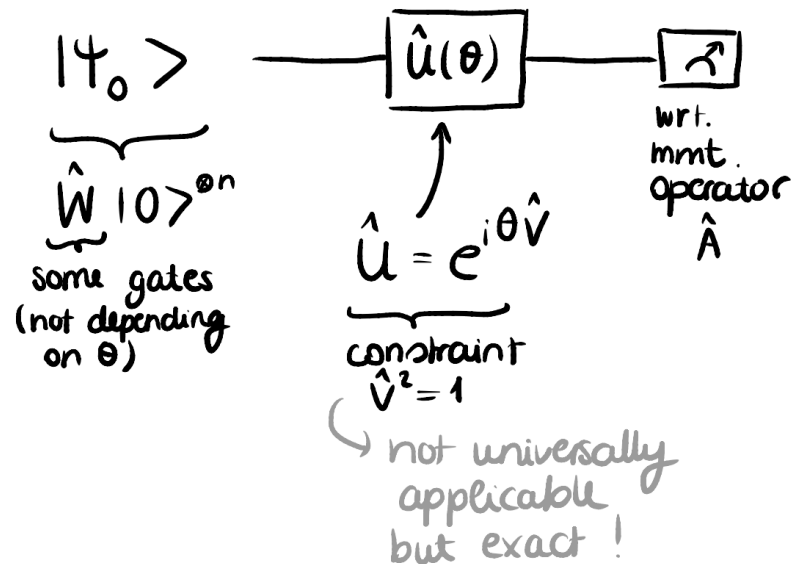 |ψ₀ >
Û(θ)
Ŵ |0>⊗n
some gates
(not depending
on θ)
Û = e^{iθV̂}
constraint
V̂² = 1
not universally
applicable
but exact !
wrt.
mmt.
operator
Â